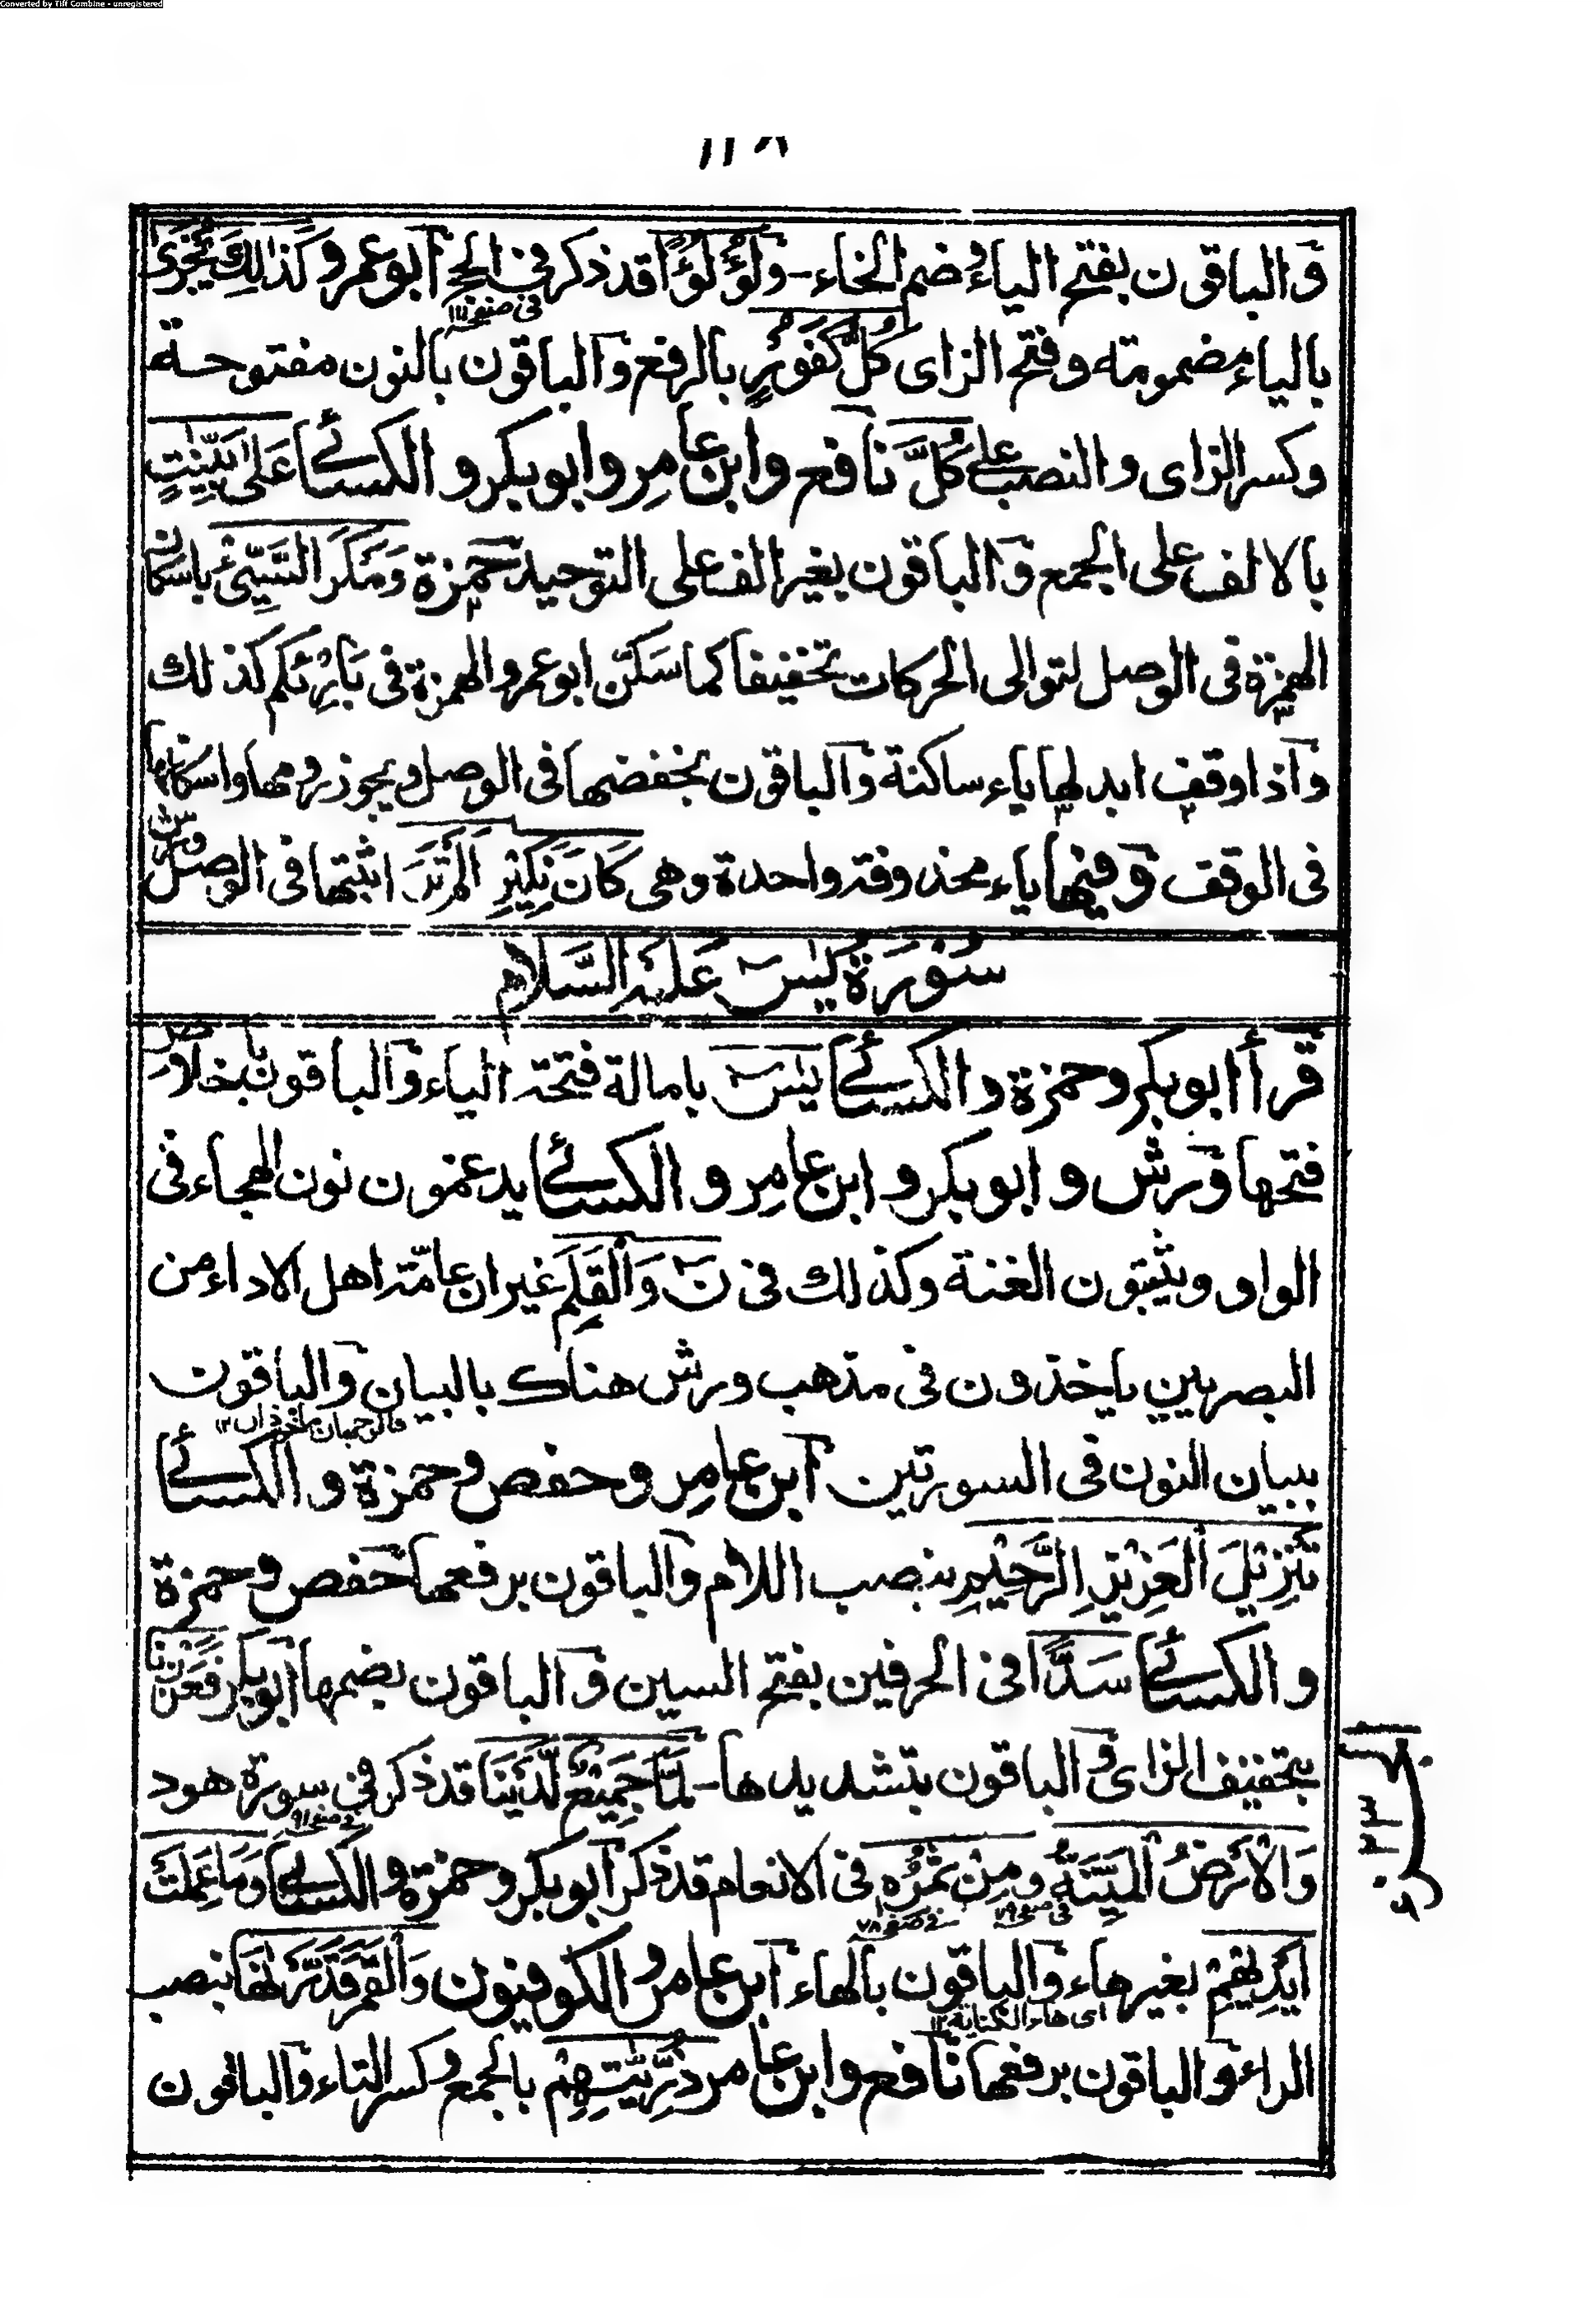 Converted by Tiff Combine - unregistered
١١٨
والباقون بفتح الياء وضم الخاء - ولؤلؤا قد ذكر في الحج ابو عمرو كَذٰلِكَ يُجْزٰى
فى صفحه
بالياء مضمومته وفتح الزاى كُلُّ كَفُوْرٍ بالرفع والباقون بالنون مفتوحـة
وكسر الزاى والنصب على كُلَّ نافع وابن عامر وابو بكر و الكسائے عَلٰى بَيِّنٰتٍ
بالالف على الجمع والباقون بغير الف على التوحيد حمزة وَمَكْرَ السَّيِّئْ باسكان
الهمزة فى الوصل لتوالى الحركات تخفيفا كما سكّن ابو عمرو الهمزة فى بَارِئْكم كذلك
واذا وقف ابدلها ياء ساكنة والباقون بخفضها فى الوصل ويجوز رومها واسكانها
فى الوقف وفيها ياء محذوفة واحدة وهى كَانَ نَكِيْرِ اَلَمْ تَرَ اثبتها فى الوصل ورش
سُوْرَةُ يٰسٓ عَلَيْهِ السَّلَام
قرأ ابو بكر وحمزة والكسائے يٰسٓ بامالة فتحة الياء والباقون باخلاص
فتحها ورش و ابو بكر و ابن عامر و الكسائے يدغمون نون الهجاء فى
الواو ويثبتون الغنة وكذلك فى نٓ وَالْقَلَمِ غير ان عامّة اهل الاداء من
البصريين ياخذون فى مذهب ورش هناك بالبيان والباقون
فالوجهان ماخوذان ١٢
ببيان النون فى السورتين ابن عامر و حفص وحمزة و الكسائے
تَنْزِيْلَ الْعَزِيْزِ الرَّحِيْمِ بنصب اللام والباقون برفعها حفص وحمزة
و الكسائے سَدًّا فى الحرفين بفتح السين والباقون بضمها ابو بكر فَعَزَزْنَا
بتخفيف الزاى والباقون بتشديدها - لَمَّا جَمِيْعٌ لَّدَيْنَا قد ذكر فى سورة هود
فے صفحه ٩١
وَالْاَرْضُ الْمَيْتَةُ ومِنْ ثَمَرِهٖ فى الانعام قد ذكر ابو بكر وحمزة والكسائے وَمَا عَمِلَتْ
فى صفحه ٧٩ فے صفحه ٧٨
اَيْدِيْهِمْ بغير هاء والباقون بالهاء ابن عامر و الكوفيون وَالْقَمَرَ قَدَّرْنٰهَا بنصب
اى هاء الكناية ١٢
الراء والباقون برفعها نافع وابن عامر ذُرِّيّٰتِهِمْ بالجمع وكسر التاء والباقون